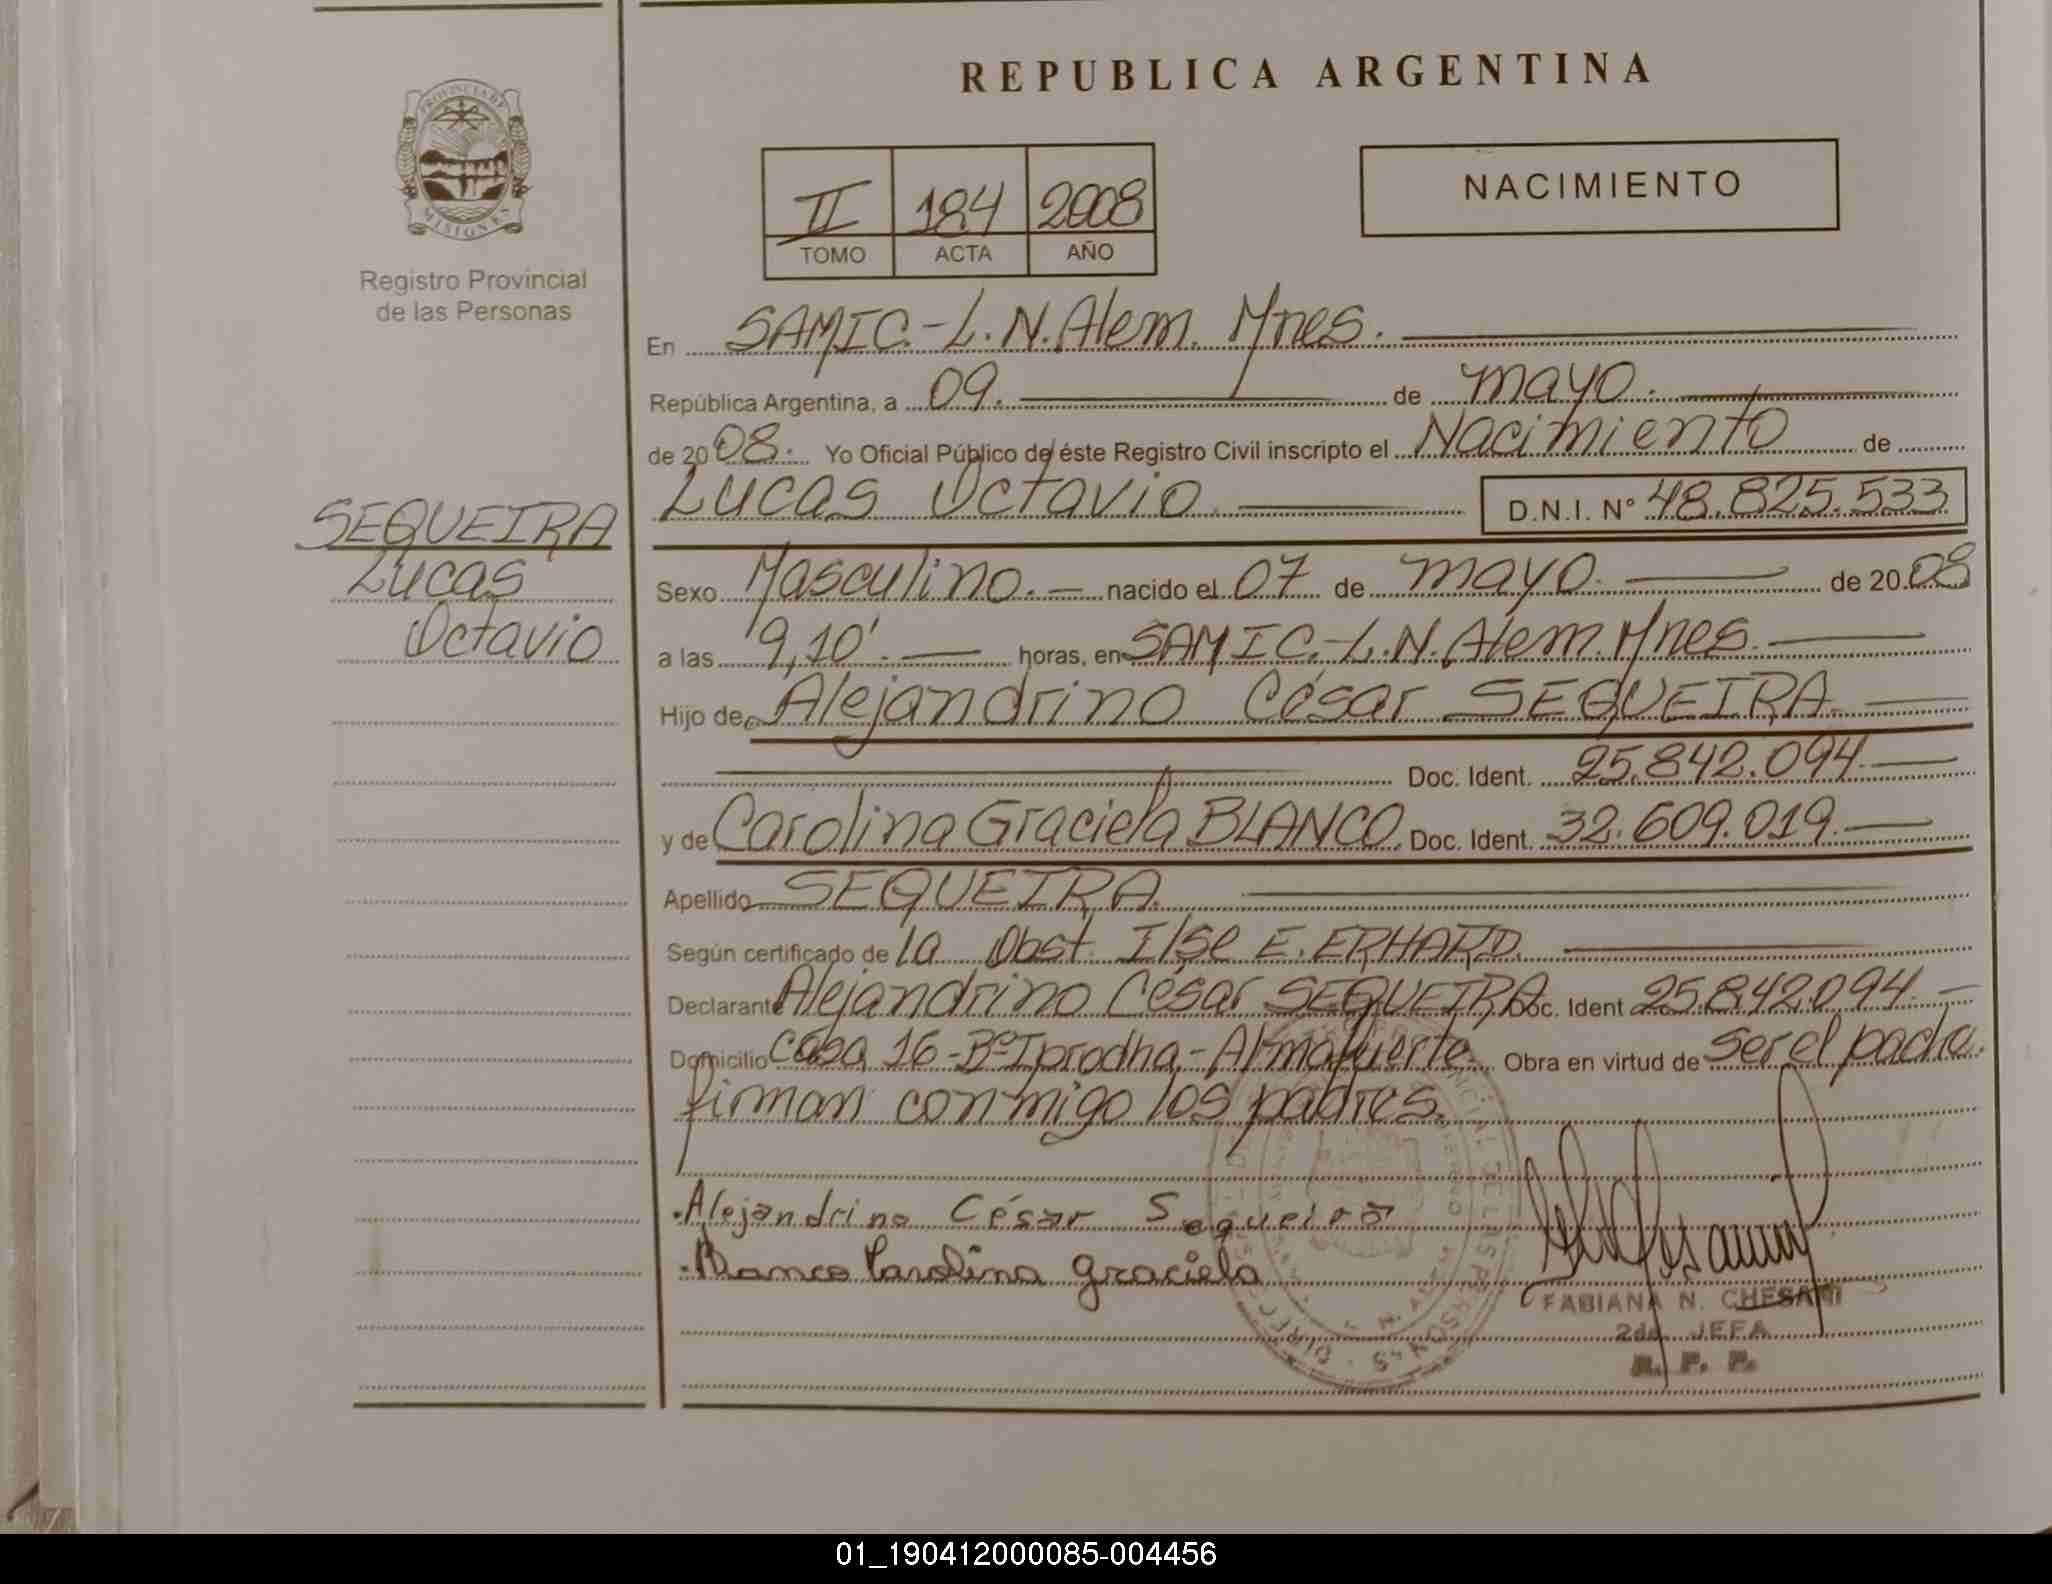 REPUBLICA ARGENTINA
PROVINCIA DE
MISIONES
Registro Provincial
de las Personas
II 184 2008
TOMO ACTA AÑO
NACIMIENTO
En SAMIC.-L.N.Alem. Mnes.
República Argentina, a 09. de mayo.
de 2008. Yo Oficial Público de éste Registro Civil inscripto el Nacimiento de
Lucas Octavio. D.N.I. N° 48.825.533
SEQUEIRA
Lucas
Octavio
Sexo Masculino. nacido el 07 de mayo. de 2008
a las 9,10'. horas, en SAMIC.-L.N.Alem.Mnes.
Hijo de Alejandrino César SEQUEIRA.
Doc. Ident. 25.842.094.
y de Carolina Graciela BLANCO. Doc. Ident. 32.609.019.
Apellido SEQUEIRA.
Según certificado de la Obst. Ilse E. ERHARD.
Declarante Alejandrino César SEQUEIRA Doc. Ident 25.842.094.
Domicilio Casa 16-B°Iprodha,-Almafuerte. Obra en virtud de ser el padre.
firman conmigo los padres.
Alejandrino César Sequeira
Blanco Carolina Graciela
FABIANA N. CHESANI
2da. JEFA
R. P. P.
01_190412000085-004456